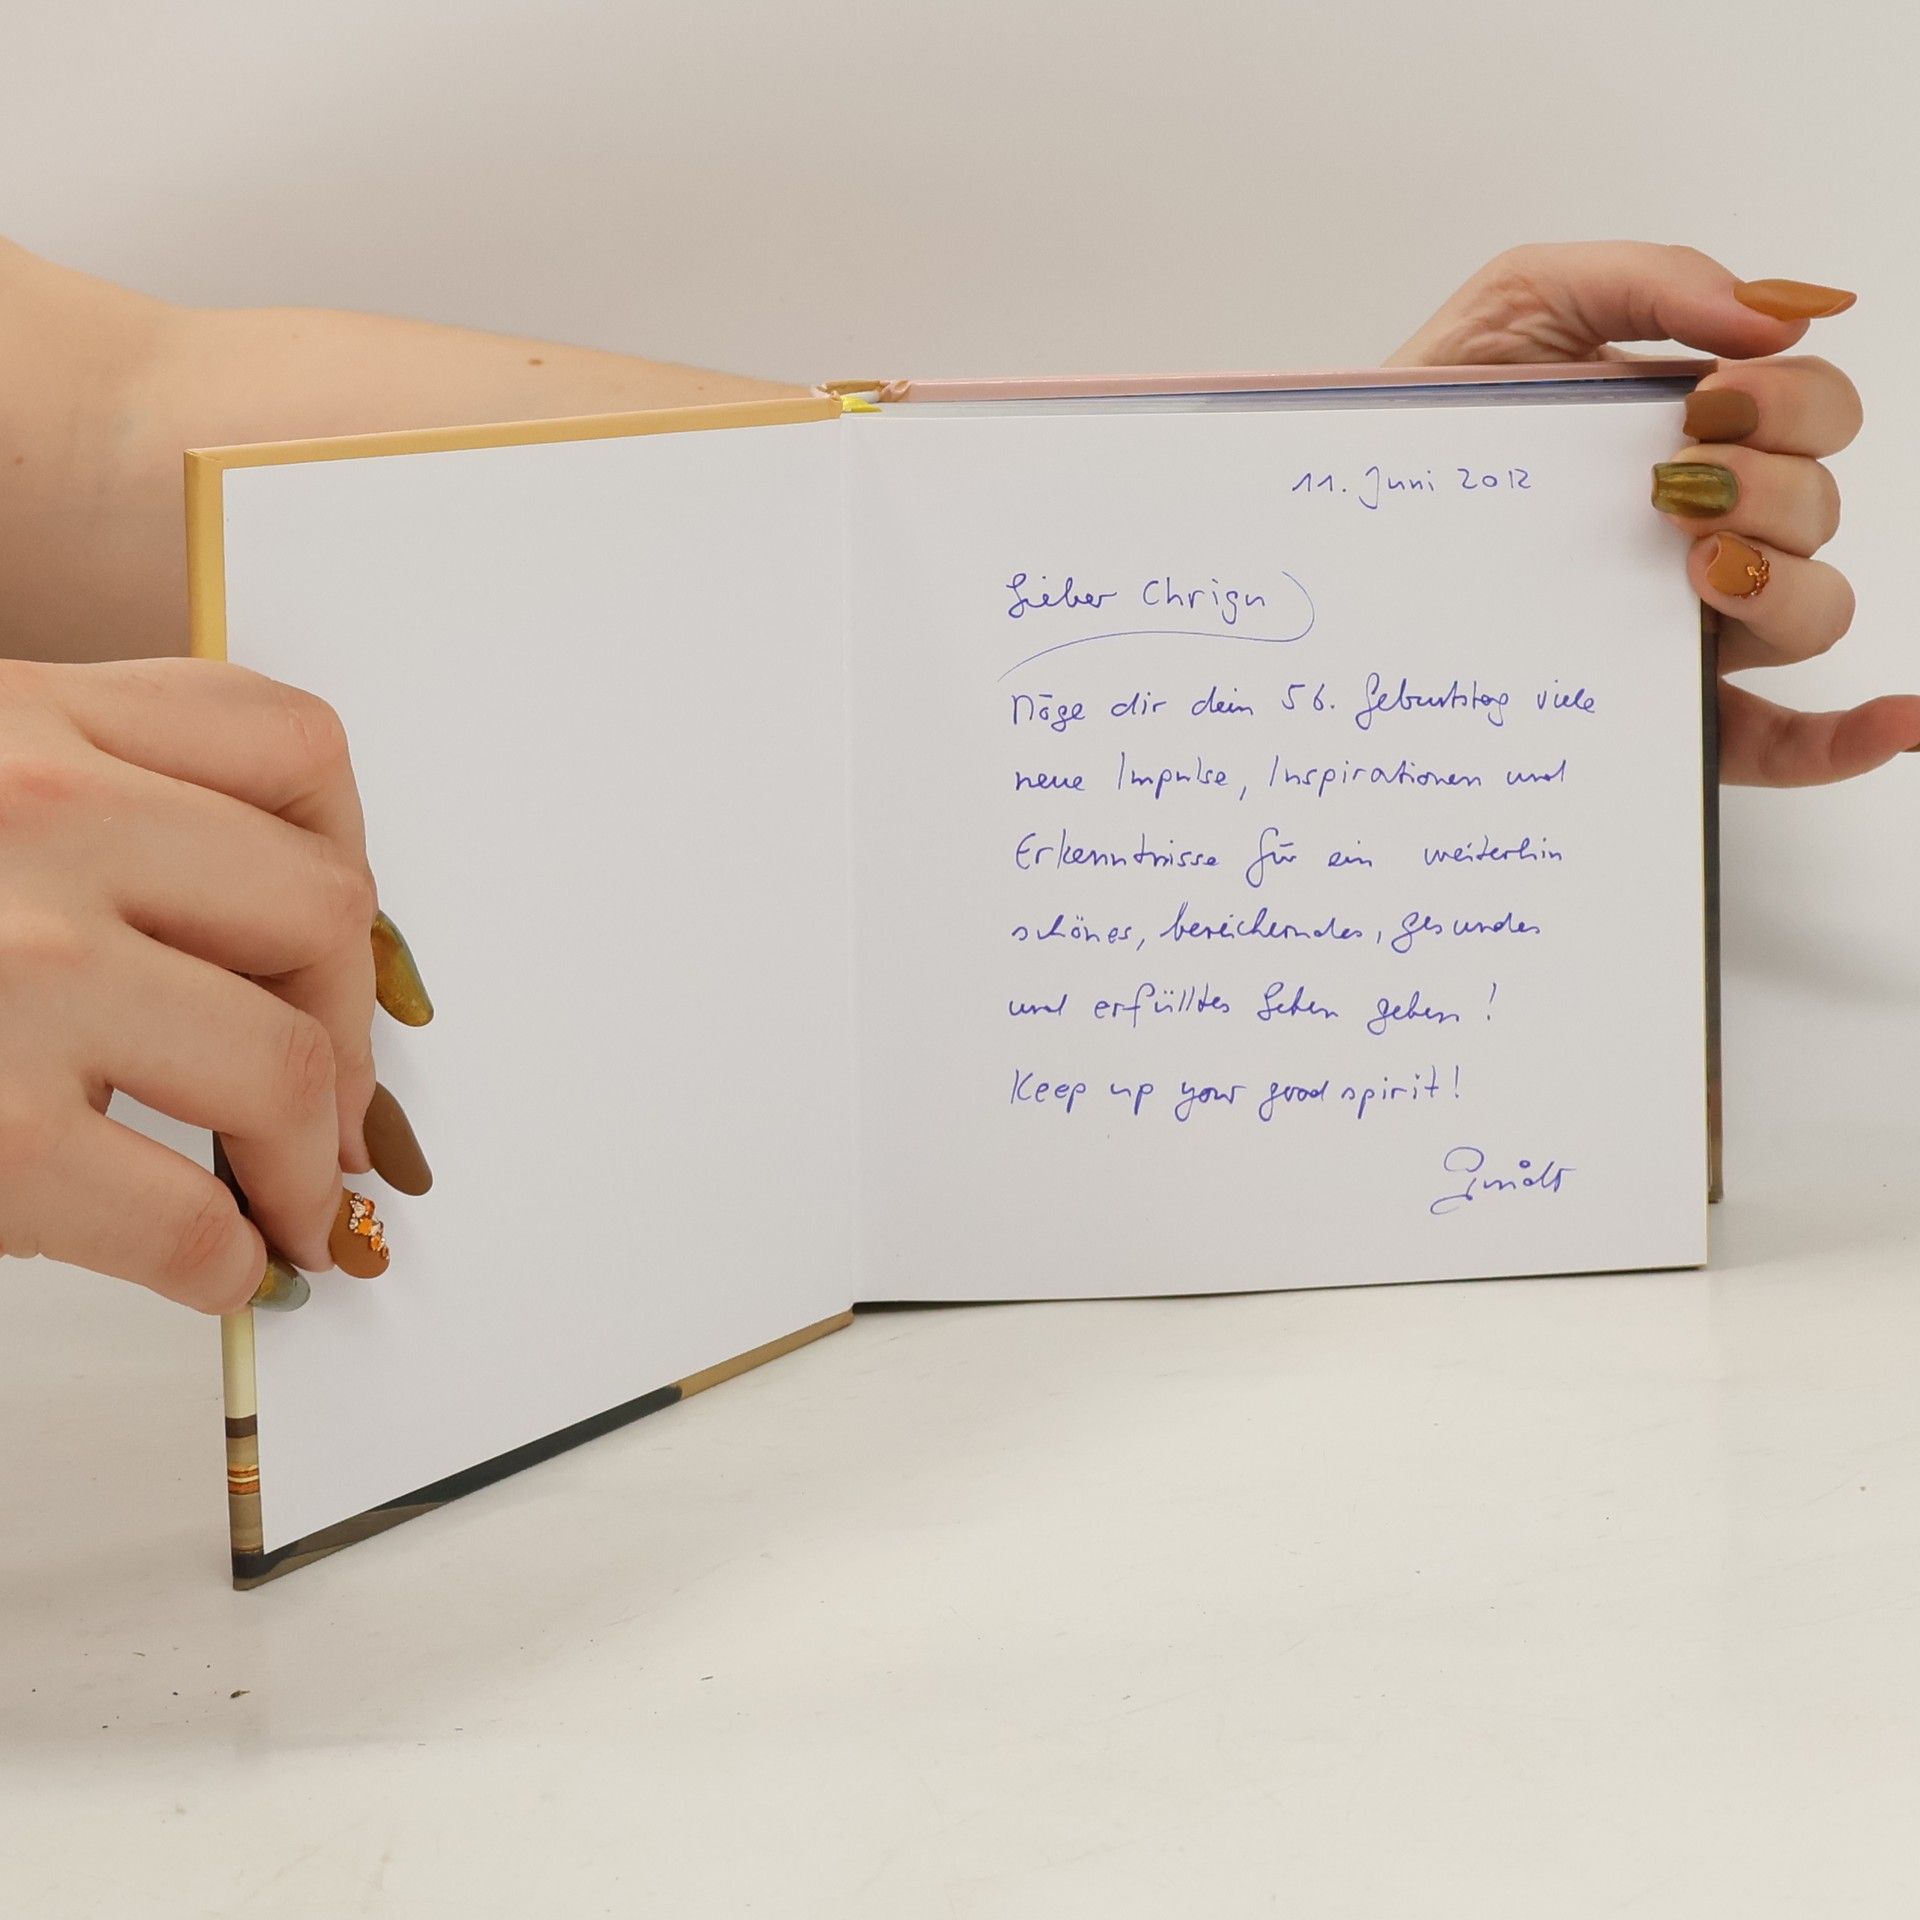 11. Juni 2012
Lieber Chrigu
Möge dir dein 56. Geburtstag viele
neue Impulse, Inspirationen und
Erkenntnisse für ein weiterhin
schönes, bereicherndes, gesundes
und erfülltes Leben geben!
Keep up your good spirit!